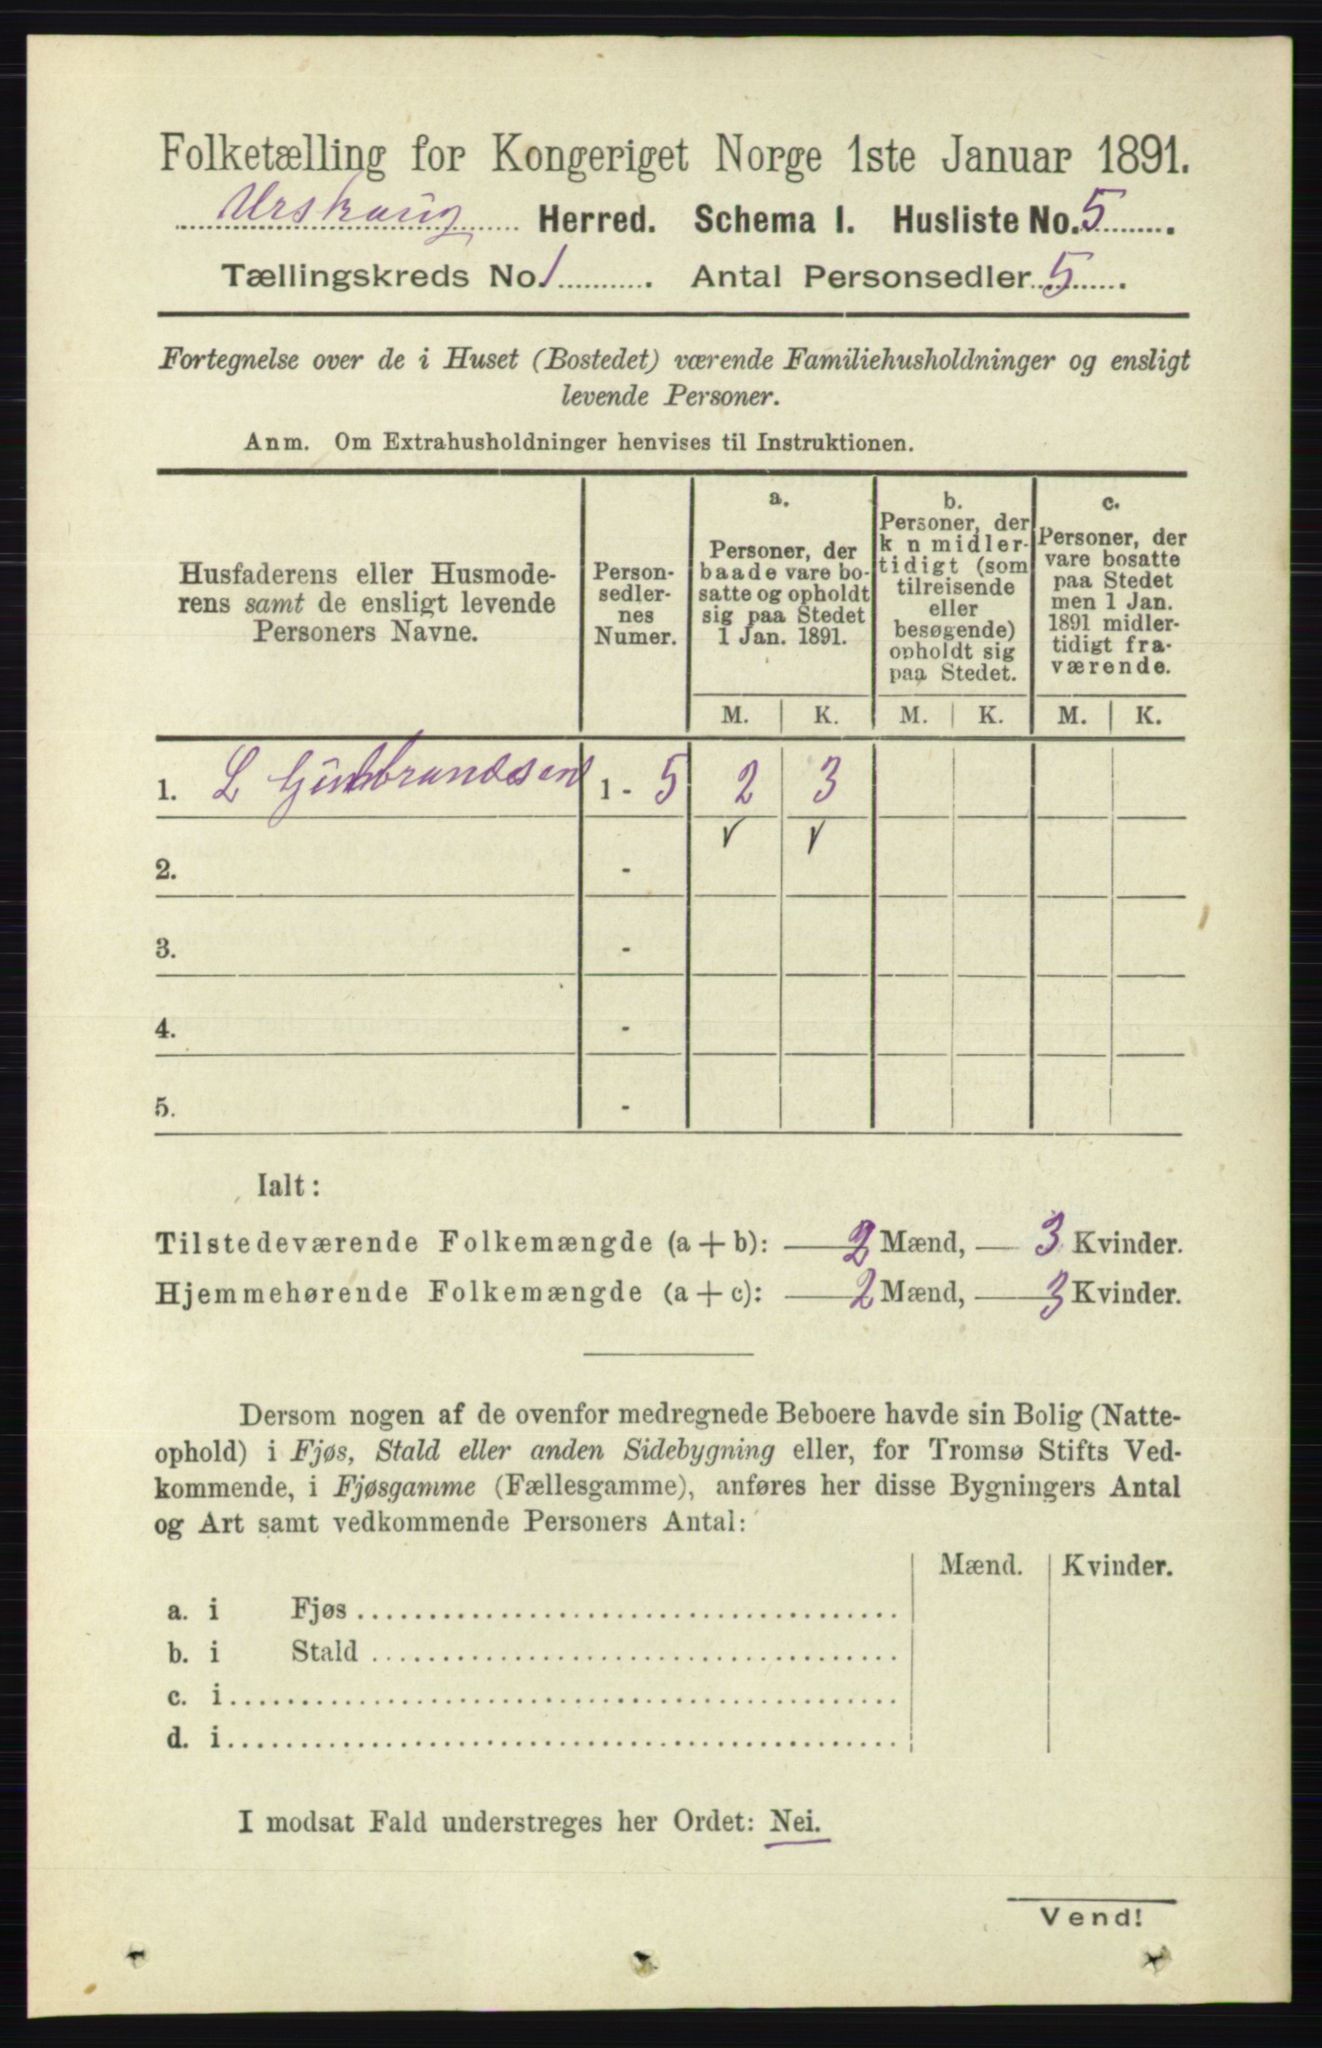 Folketælling for Kongeriget Norge 1ste Januar 1891.
Urskoug Herred. Schema I. Husliste No. 5
Tællingskreds No. 1 . Antal Personsedler 5 .
Fortegnelse over de i Huset (Bostedet) værende Familiehusholdninger og ensligt
levende Personer.
Anm. Om Extrahusholdninger henvises til Instruktionen.
Husfaderens eller Husmode-
rens samt de ensligt levende
Personers Navne.
Person-
sedler-
nes
Numer.
a.
Personer, der
baade vare bo-
satte og opholdt
sig paa Stedet
1 Jan. 1891.
b.
Personer, der
k n midler-
tidigt (som
tilreisende
eller
besøgende)
opholdt sig
paa Stedet.
c.
Personer, der
vare bosatte
paa Stedet
men 1 Jan.
1891 midler-
tidigt fra-
værende.
M. K. M. K. M. K.
1. L Gudbrandsen 1 - 5 2 3
2. -
3. -
4. -
5. -
Ialt:
Tilstedeværende Folkemængde (a + b): 2 Mænd, 3 Kvinder.
Hjemmehørende Folkemængde (a + c): 2 Mænd, 3 Kvinder.
Dersom nogen af de ovenfor medregnede Beboere havde sin Bolig (Natte-
ophold) i Fjøs, Stald eller anden Sidebygning eller, for Tromsø Stifts Ved-
kommende, i Fjøsgamme (Fællesgamme), anføres her disse Bygningers Antal
og Art samt vedkommende Personers Antal:
Mænd. Kvinder.
a. i Fjøs
b. i Stald
c. i
d. i
I modsat Fald understreges her Ordet: Nei.
Vend!